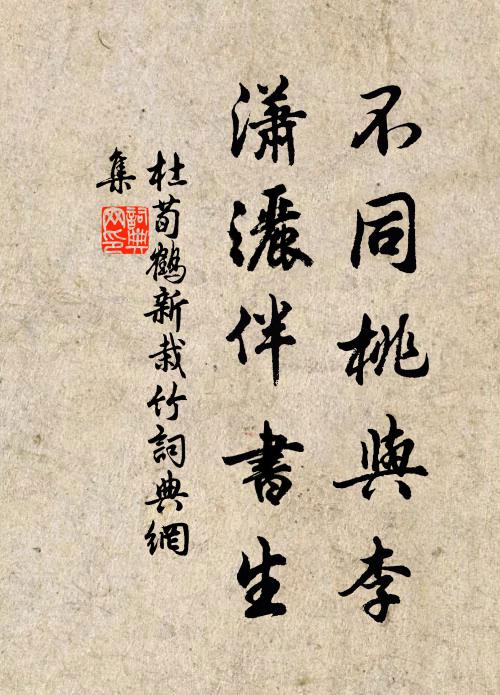 不同桃與李
瀟灑伴書生
杜荀鶴新栽竹詞典網
集
詞典網印